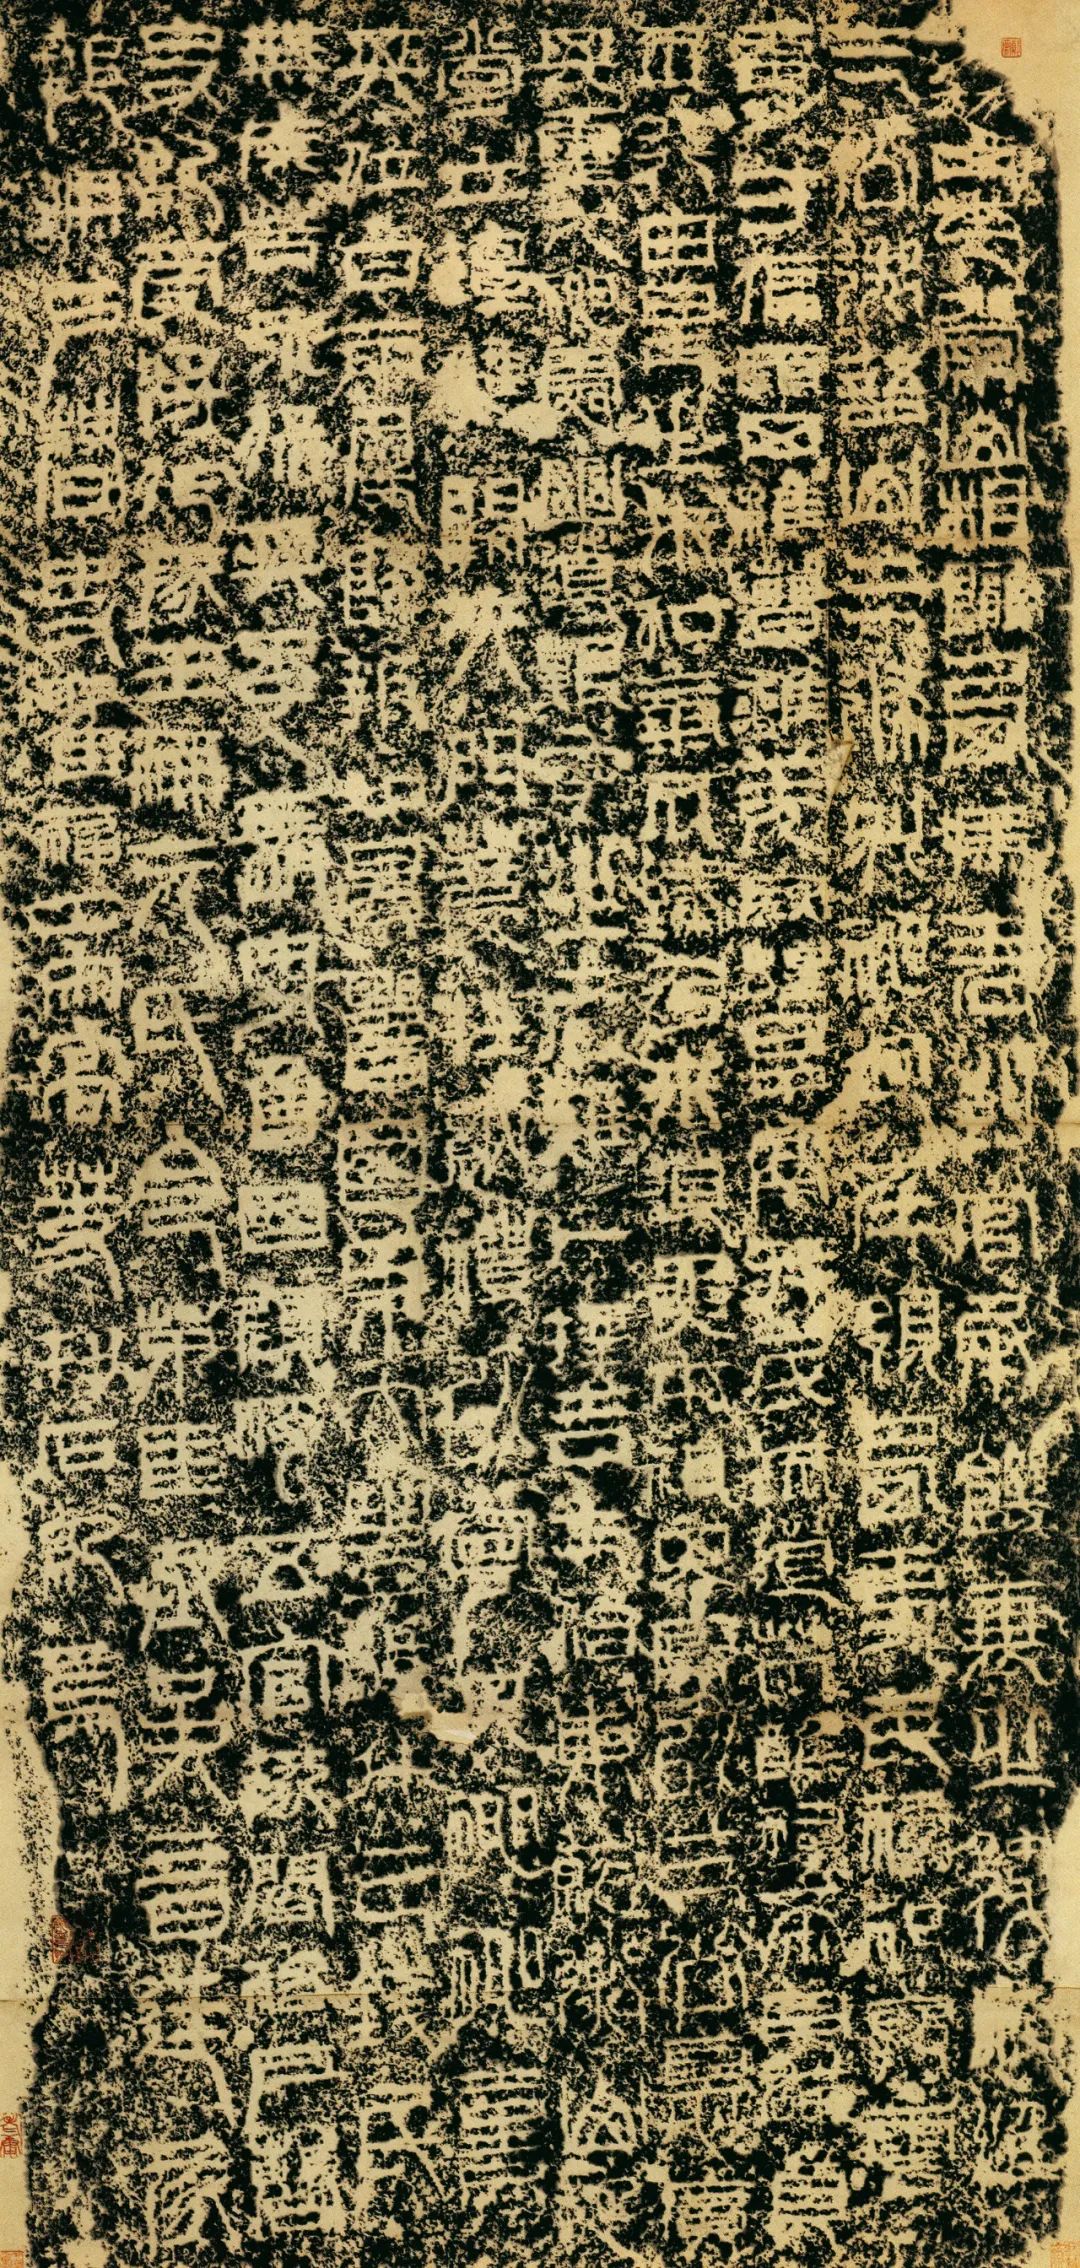 初四年常山相隴西馮君到官承饑衰之後惟
三公御語山三條別神迥在領西吏民禱祀興雲
膚寸偏雨四維遭離羌寇蝗旱鬲并民流道荒醮祠希罕奠
不行由是之來和氣不臻乃來道要本祖其原以三公德廣
其靈尤神處幽道艱存之者難卜擇吉治東就衡山起
堂立壇雙闕夾門薦牲納禮以寧其神神熹
其位甘雨屢降報如景響國界大豐穀斗三錢民
無疾苦永保其年長史魯國顏浮五官掾閻祐戶曹
史紀受將作掾王笧元氏令茆匡丞吳音廷掾
郭洪戶曹史翟福工宋高等刊石紀焉